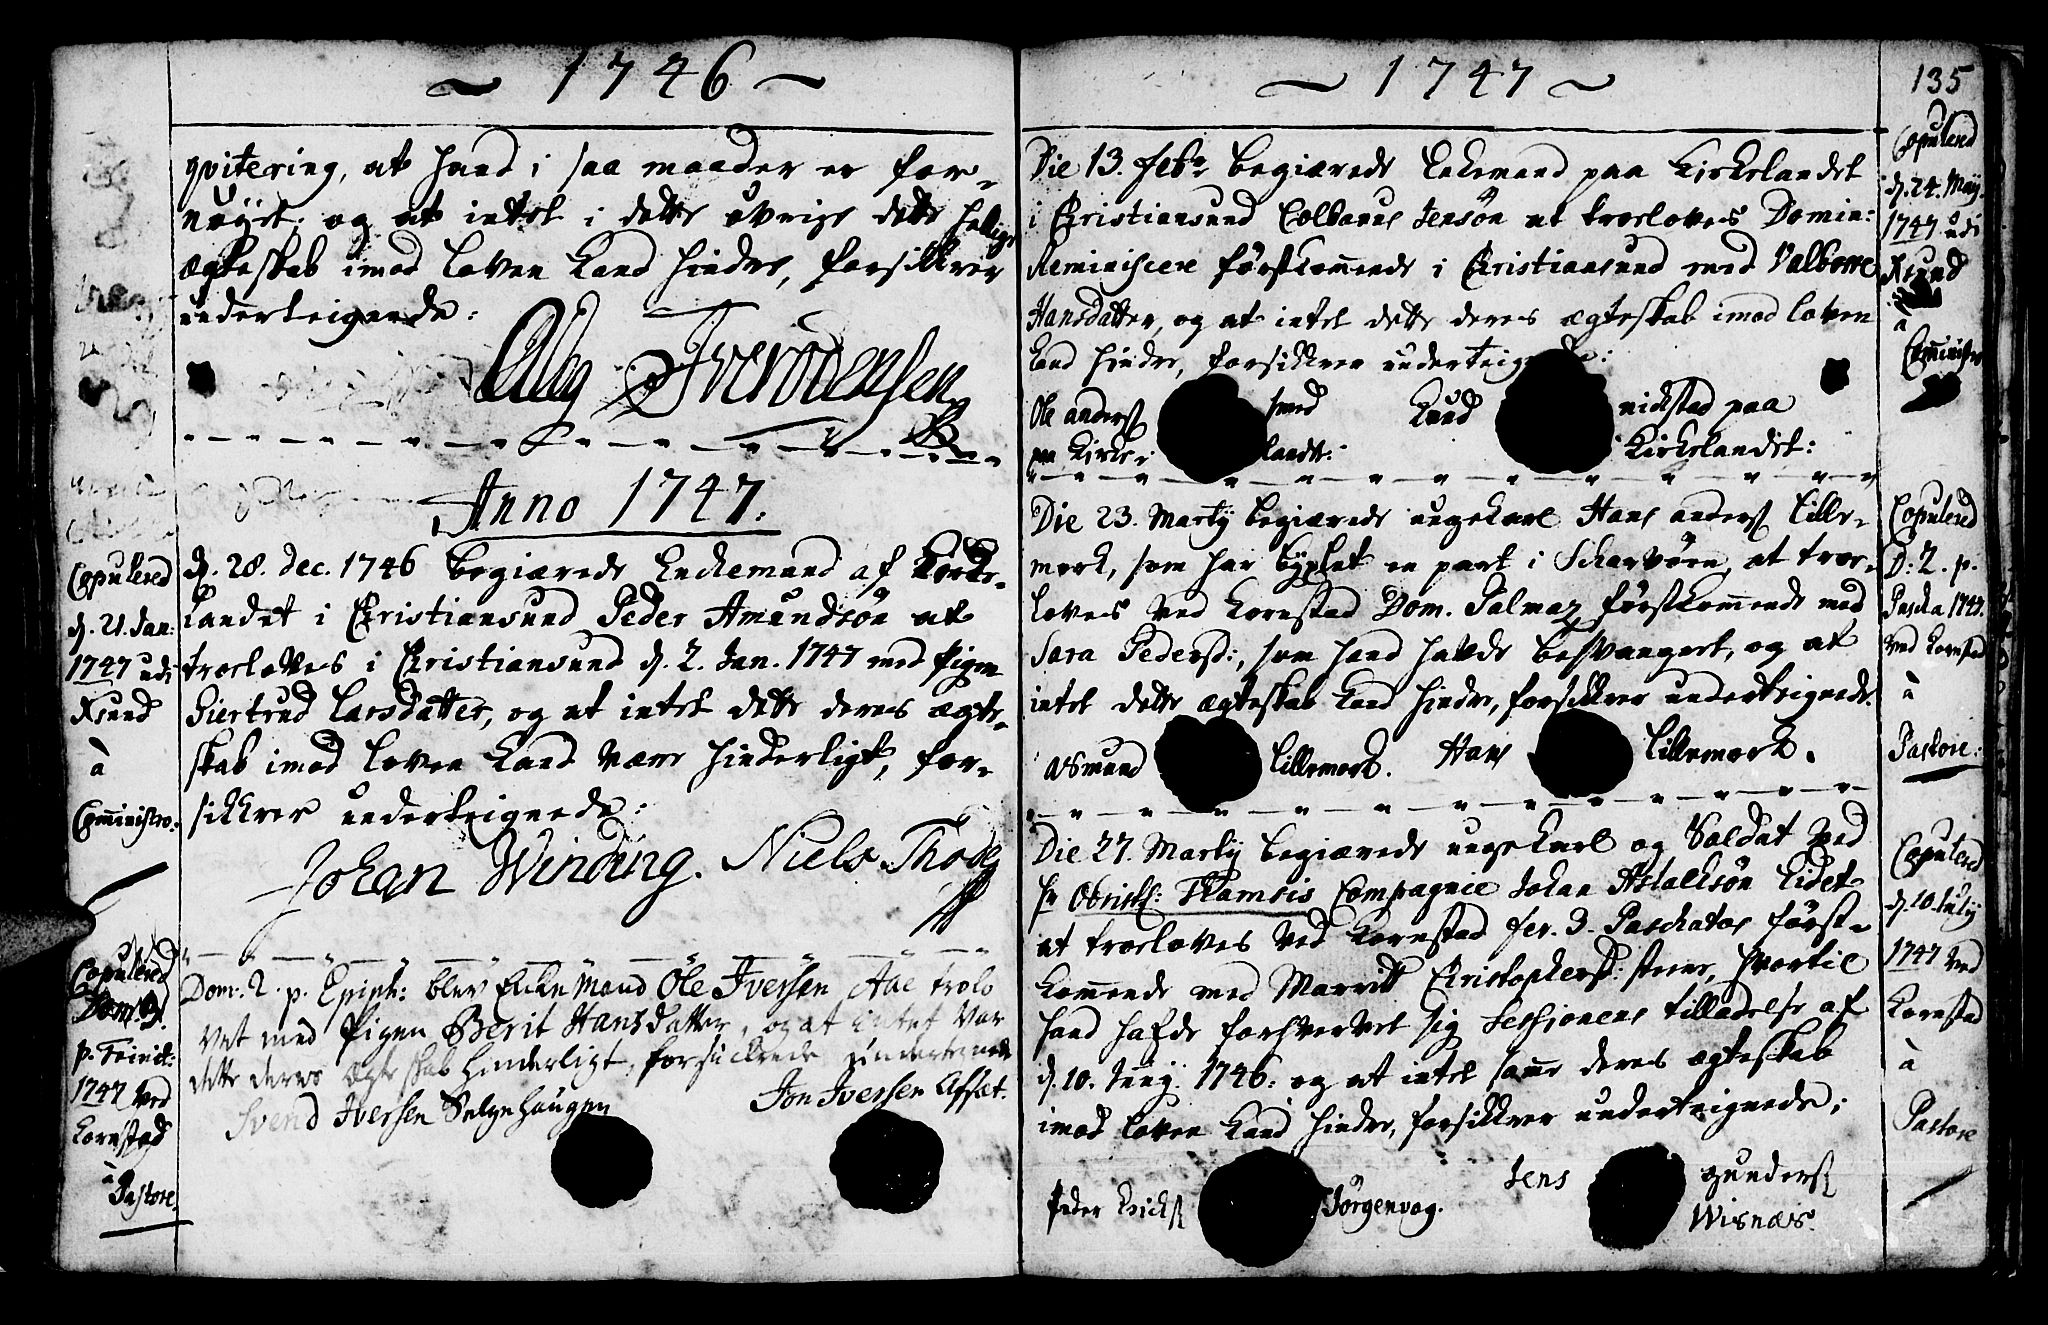 ~ 1746 ~
qvitering, at hand i saa maader er for-
nöyet; og at intet i dette övrige dette hellige
ægteskab imod loven kand hindre, forsikkrer
underteignede:
Anno 1747.
Copulered
d. 21. Jan:
1747 udi
Xsund
à
Comministro:
d. 28. dec. 1746 begiærede Enckemand af Kirke-
landet i Christiansund Peder Amundsön at
troeloves i Christiansund d. 2. Jan. 1747 med Pigen
Giertrud Larsdatter, og at intet dette deres ægte-
skab imod loven kand være hinderligt, for-
sikkrer underteignede:
Johan Winding. Niels Thode
Copulered
Dom. 3.
p. Trinit:
1747 ved
Kornstad
à
Pastore.
Dom: 2. p. Epiph: blev Enkemand Ole Iversen Aae trolo
vet med Pigen Berit Hansdatter, og at intet var
dette deres ægteskab hinderligt, forsickrede undertegnede
Svend Iversen Selgehaugen
Jon Iversen Afsæt.
~ 1747 ~
135
Die 13. febr begiærede Enkemand paa Kirkelandet
i Christiansund Colbanus Jensön at troeloves Domin:
Reminiscere förstkommende i Christiansund med Valborre
Hansdatter, og at intet dette deres ægteskab imod loven
kand hindre, forsikkrer underteignede:
Ole anders smed
paa Kirke- landet:
Knud nickstad paa
Kirkelandet:
Copulered
d. 24. May.
1747 udi
Xsund
à
Comministro
Die 23. Martij begiærede ungekarl Hans anders Lille-
merk, som har byxlet en part i Scharvören, at troe-
loves ved Kornstad Dom. Palmar förstkommende med
Sara Pedersd:, som hand hafde besvangret, og at
intet dette ægteskab kand hindre, forsikkrer underteignede.
Asmund Lillemerk. Hans Lillemerk.
Copulered
D: 2. p.
Pascha 1747.
ved Kornstad
à
Pastore:
Die 27. Martij begiærede ungekarl og Soldat ved
hr Obristl: Flamsis Compagnie Johan Astachsön Eidet
at troeloves ved Kornstad fer. 3. Paschatos först-
kommende med Marritt Christophersd: steene, hvortil
hand hafde forhvervet sig Sessionens tilladelse af
d. 10. Junij. 1746. og at intet samme deres ægteskab
imod loven kand hindre, forsikkrer underteignede;
Peder Erichs Jörgenvog.
Jens gunders
Wisnæs.
Copulered
d. 10. July
1747 ved
Kornstad
à
Pastore